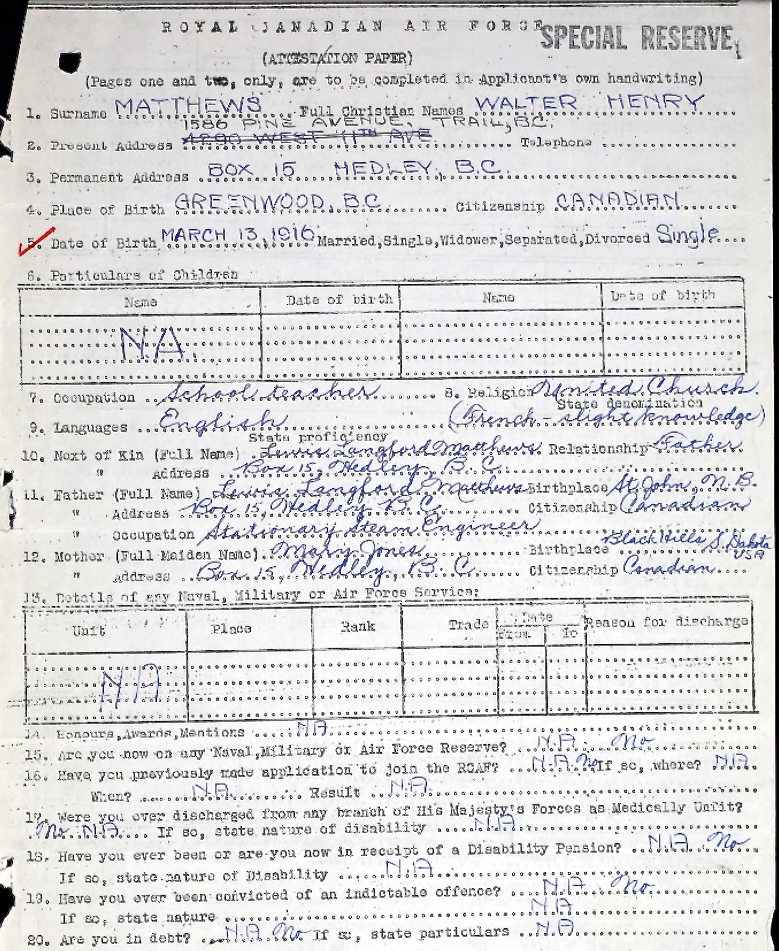 ROYAL CANADIAN AIR FORCE
SPECIAL RESERVE
(ATTESTATION PAPER)
(Pages one and two, only, are to be completed in Applicant's own handwriting)
1. Surname MATTHEWS Full Christian Names WALTER HENRY
1586 PINE AVENUE, TRAIL, B.C.
2. Present Address 4290 WEST 11TH AVE Telephone
3. Permanent Address BOX 15 HEDLEY, B.C.
4. Place of Birth GREENWOOD, B.C. Citizenship CANADIAN
5. Date of Birth MARCH 13, 1916 Married, Single, Widower, Separated, Divorced Single
6. Particulars of Children
Name Date of birth Name Date of birth
N.A.
7. Occupation School teacher 8. Religion United Church
State denomination
9. Languages English (French - slight knowledge)
State proficiency
10. Next of Kin (Full Name) Lewis Langford Matthews Relationship Father
" Address Box 15, Hedley, B.C.
11. Father (Full Name) Lewis Langford Matthews Birthplace St. John, N.B.
" Address Box 15, Hedley B.C. Citizenship Canadian
" Occupation Stationary Steam Engineer
12. Mother (Full Maiden Name) Mary Jones Birthplace Black Hills S. Dakota USA
" Address Box 15, Hedley, B.C. Citizenship Canadian
13. Details of any Naval, Military or Air Force Service:
Unit Place Rank Trade Date From To Reason for discharge
N.A
14. Honours, Awards, Mentions N.A.
15. Are you now on any Naval, Military or Air Force Reserve? N.A. No
16. Have you previously made application to join the RCAF? N.A. No If so, where? N.A.
When? N.A. Result N.A.
17. Were you ever discharged from any branch of His Majesty's Forces as Medically Unfit?
No N.A. If so, state nature of disability N.A.
18. Have you ever been or are you now in receipt of a Disability Pension? N.A. No
If so, state nature of Disability N.A
19. Have you ever been convicted of an indictable offence? N.A. No
If so, state nature N.A
20. Are you in debt? N.A. No If so, state particulars N.A